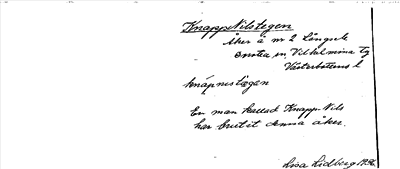 Knapp Nilstegen
Åker å nr 2 Långsele
Vilhelmina
Västerbottens l
knäpnestegen
En man kallad Knapp-Nils
har brutit denna åker.
Lisa Lidberg 1936